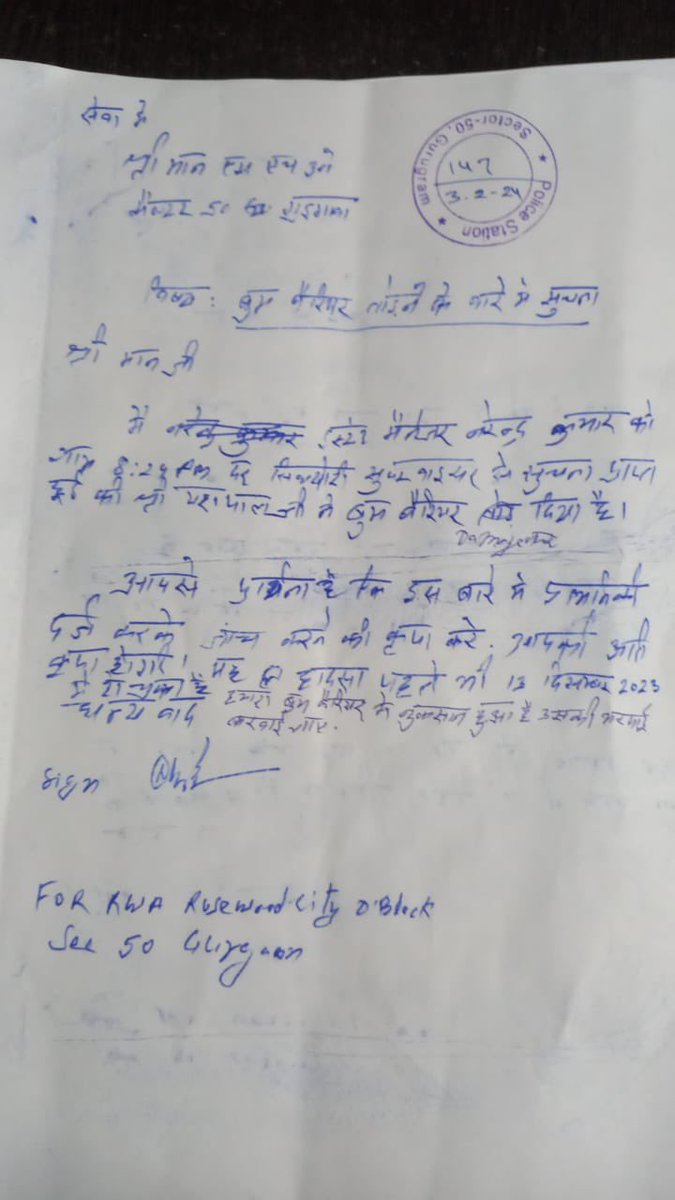 सेवा में
श्री मान एस एच ओ
सैक्टर 50 गुड़गावा
Police Station
Sector-50, Gurugram
147
3-2-24
विषय: बुम बैरियर तोड़ने के बारे में सुचना
श्री मान जी
मैं नरेन्द्र कुमार स्टेट मैनेजर नरेन्द्र कुमार को
शाम 8:24 PM पर सिक्योरिटी सुपरवाइजर से सुचना प्राप्त
हुई की श्री यशपाल जी ने बुम बैरियर तोड़ दिया है।
आपसे प्रार्थना है कि इस बारे में प्राथमिकी
दर्ज करके जांच करने की कृपा करे. आपकी अति
कृपा होगी। यह हादसा पहले भी 13 दिसम्बर 2023
में हो चुका है हमारा बुम बैरियर में नुकसान हुआ है उसकी भरपाई
धन्यवाद करवाई जाए.
FOR RWA Rosewood City D'Block
Sec 50 Gurgaon